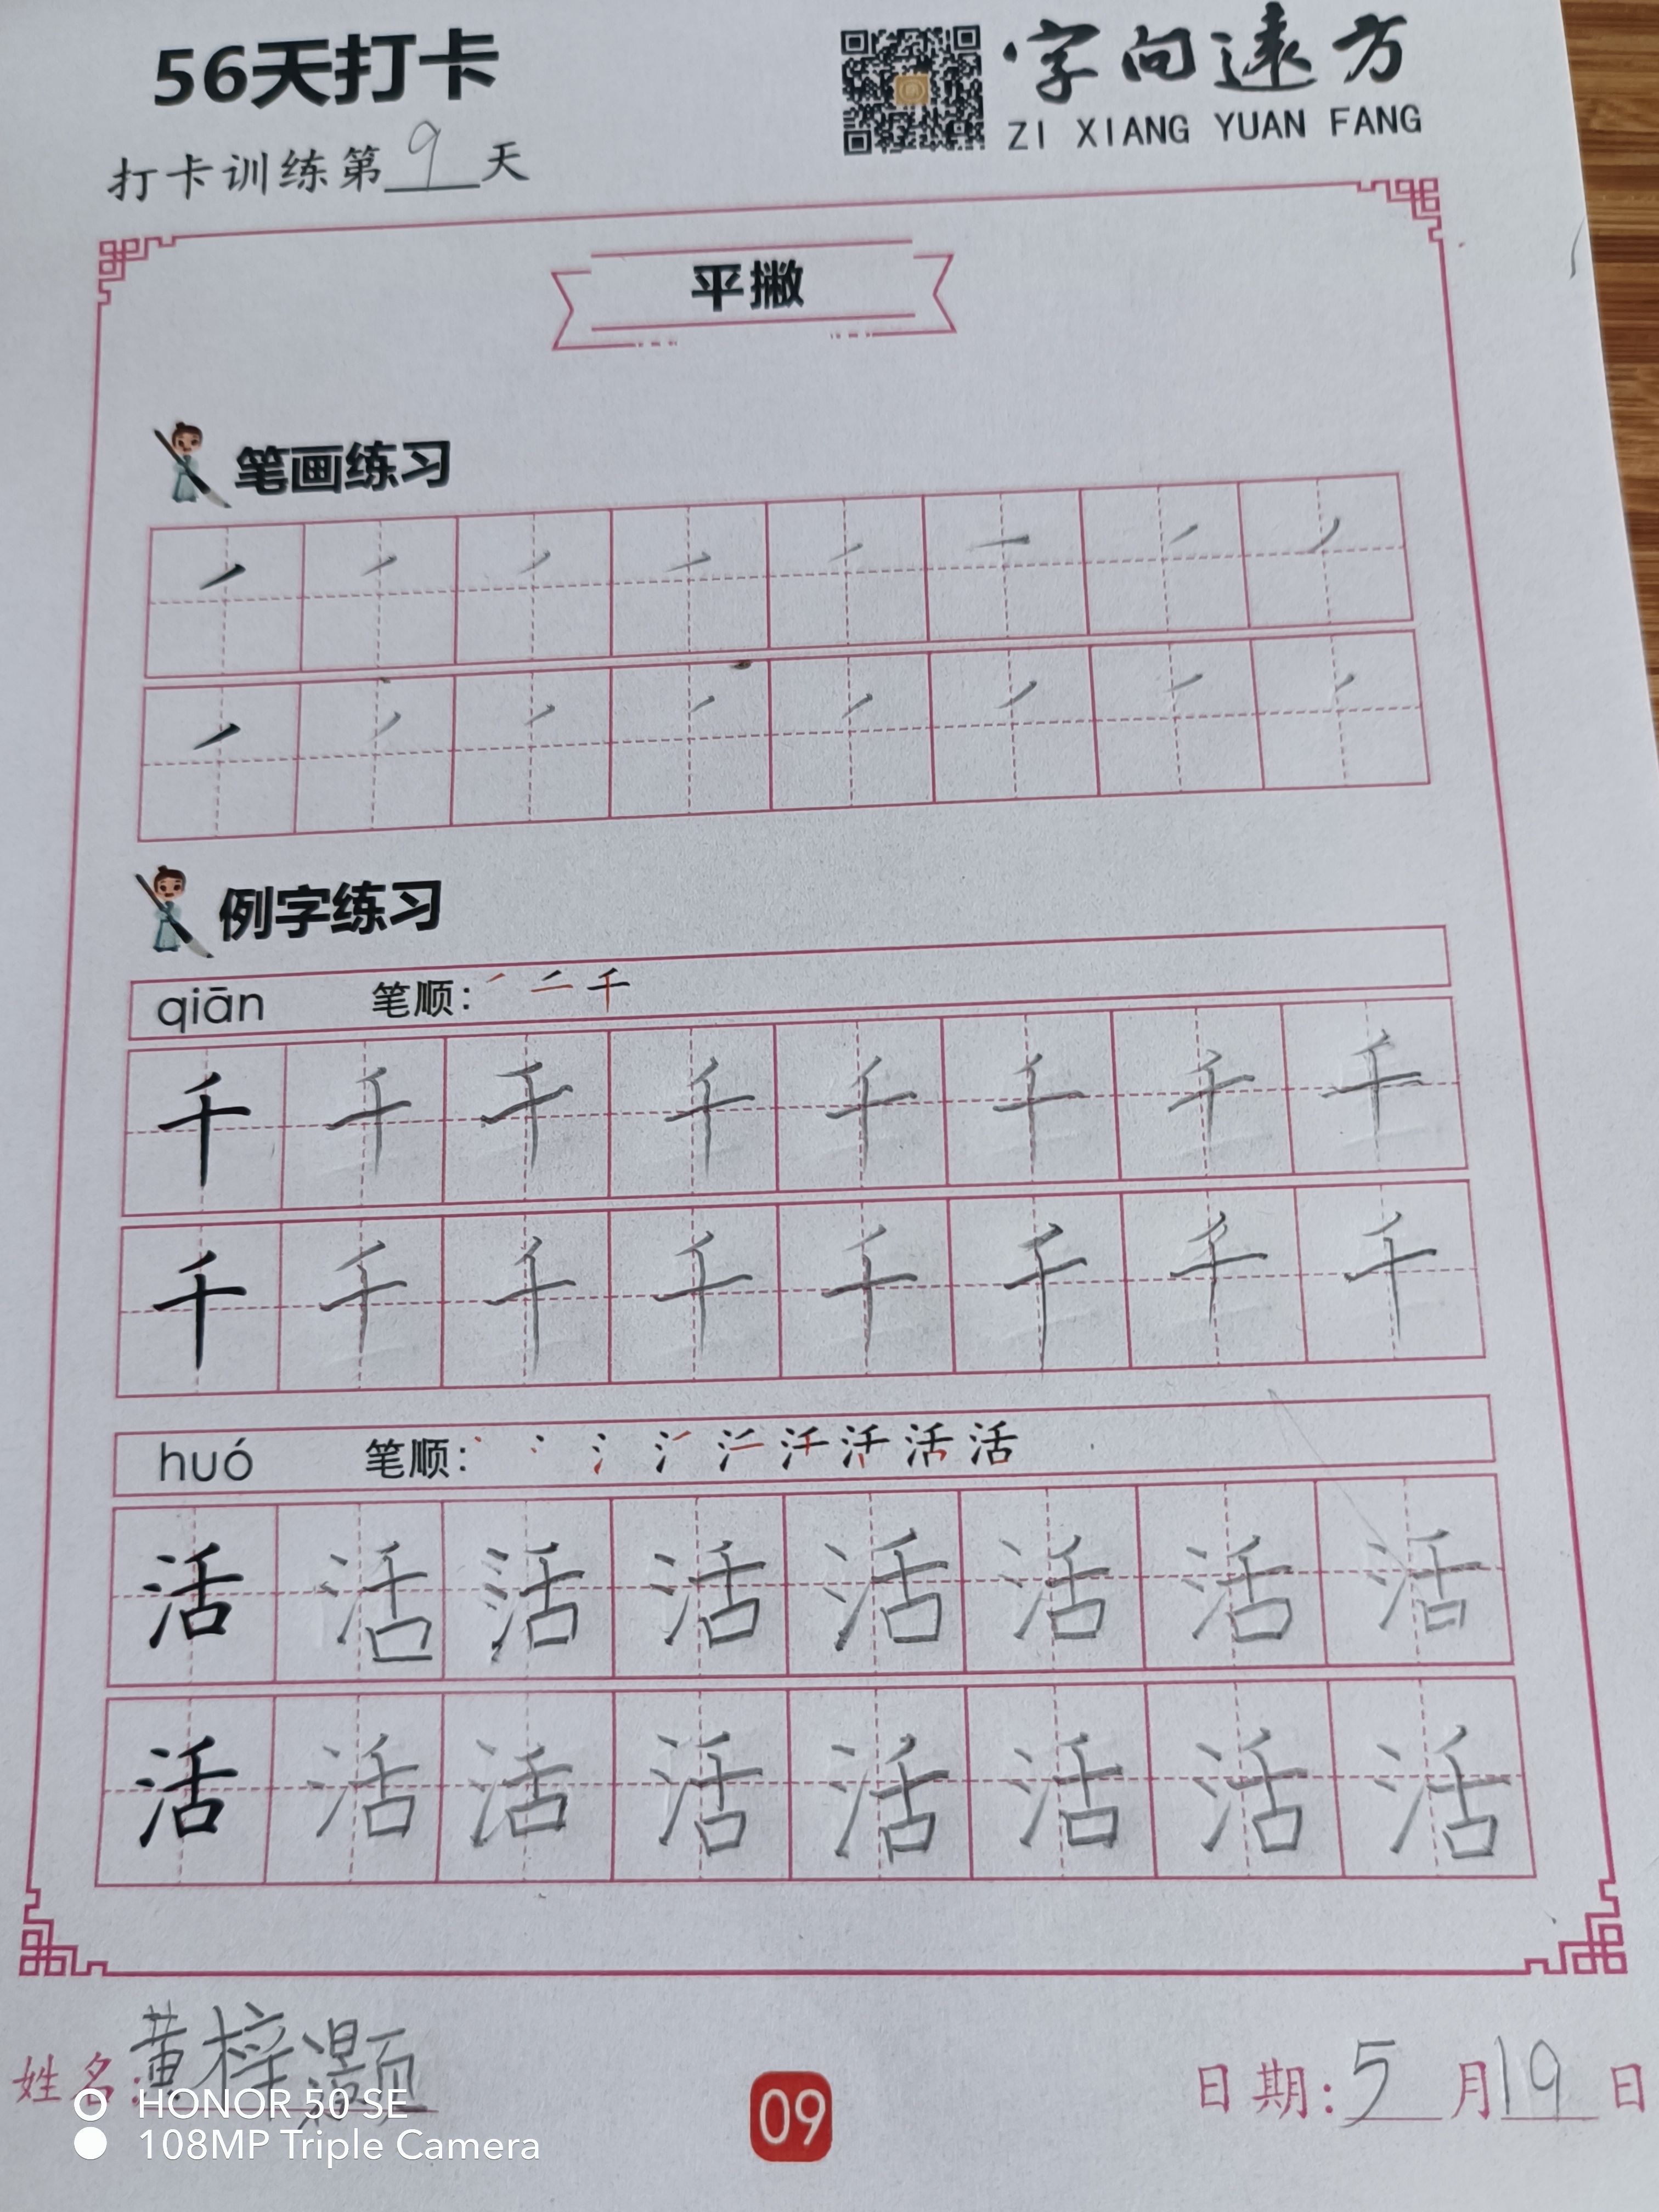 56天打卡
字向遠方
ZI XIANG YUAN FANG
打卡训练第9天
平撇
笔画练习
例字练习
qiān 笔顺: 千
千 千 千 千 千 千 千 千
千 千 千 千 千 千 千 千
huó 笔顺: 活
活 活 活 活 活 活 活 活
活 活 活 活 活 活 活 活
姓名:黄梓灏
日期:5月19日
HONOR 50 SE
108MP Triple Camera
09